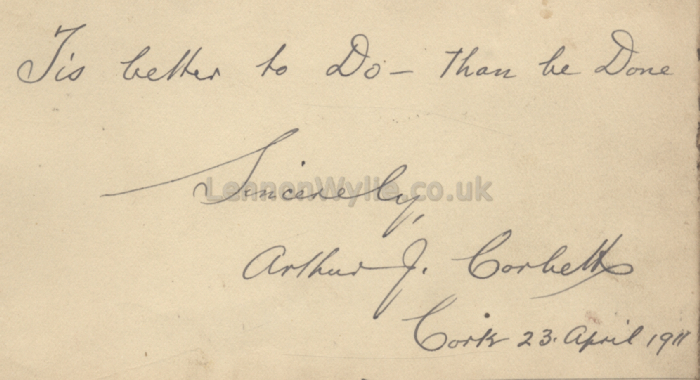 Tis better to Do - than be Done
Sincerely,
LennonWylie.co.uk
Arthur J. Corbett
Cork 23. April 1911